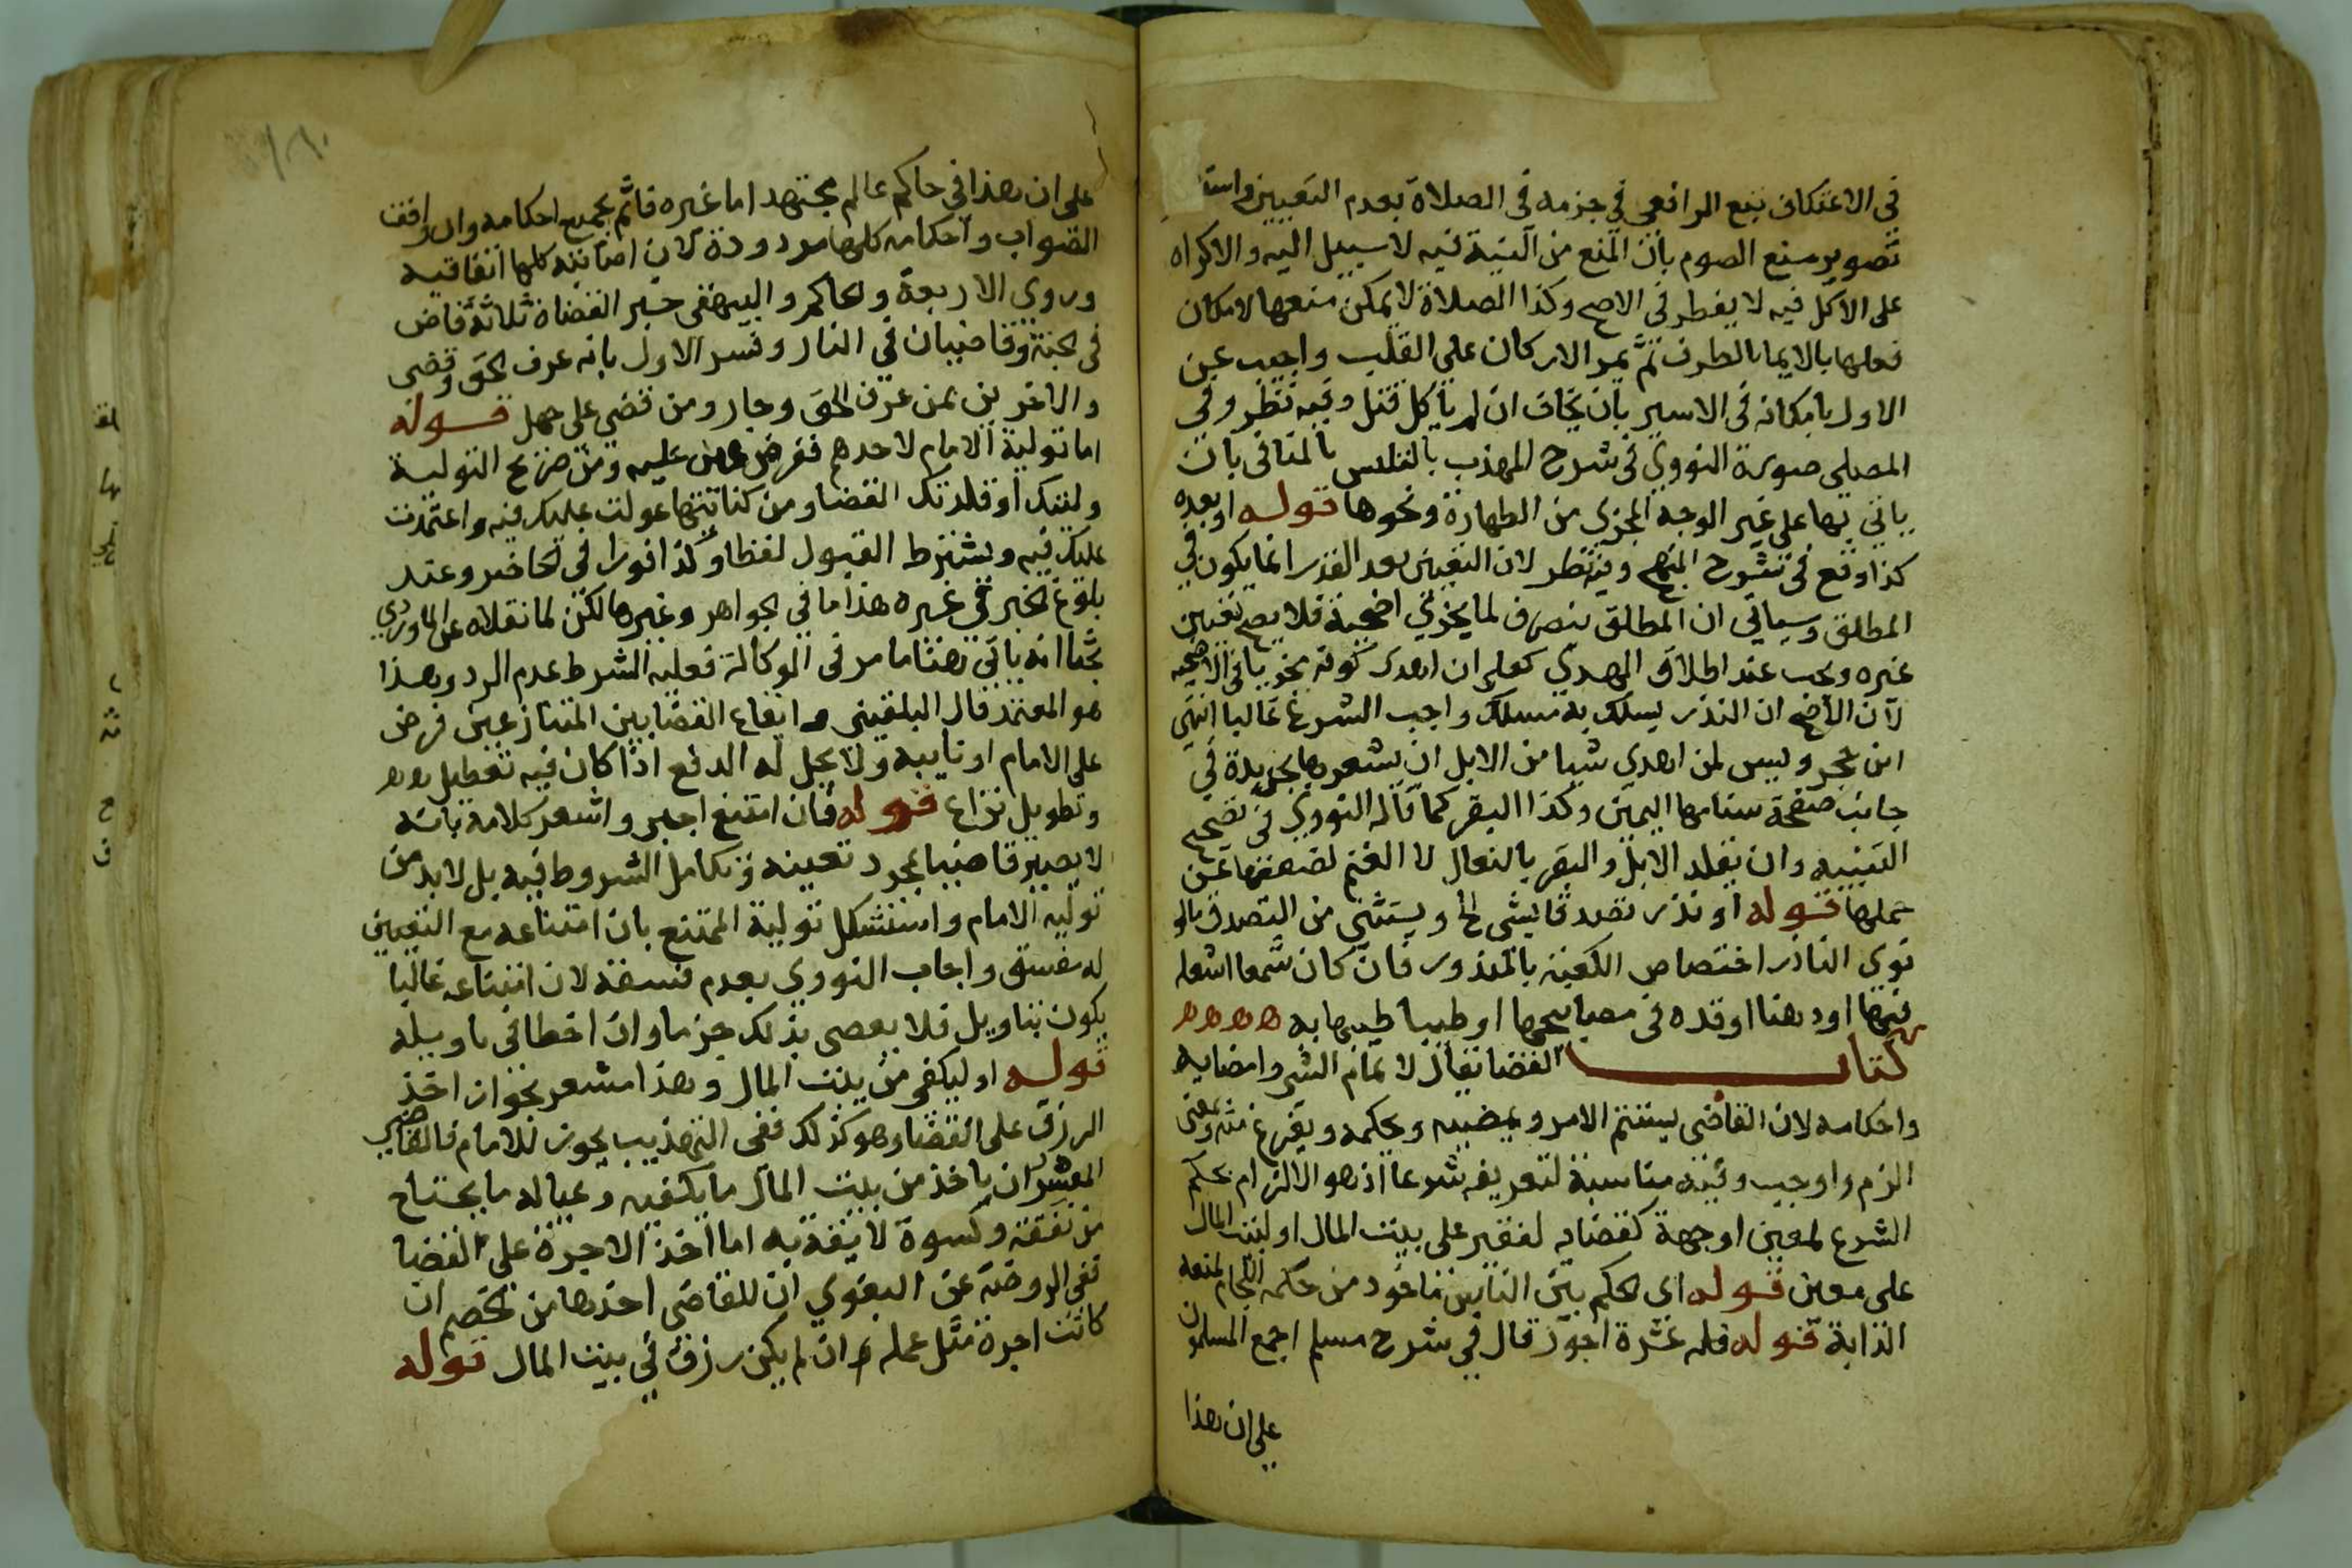 في الاعتكاف تبع الرافعي في جزمه في الصلاة بعدم التعيين واستا
تصوير منع الصوم بان المنع من النية فيه لا سبيل اليه والاكراه
على الاكل فيه لا يفطر في الاصح وكذا الصلاة لا يمكن منعها لامكان
فعلها بالايما بالطرف ثم بمر الاركان على القلب واجيب عن
الاول بامكانه في الاسير بان يخاف ان لم ياكل قتل وفيه نظر وفي
المصلى صورة النووي في شرح المهذب بالتلبس بالمنافي بان
ياتي بها على غير الوجه المجزي من الطهارة ونحوها قوله او بعده
كذا وقع في شرح المنهج وفيه نظر لان التعيين بعد النذر انما يكون في
المطلق وسياتي ان المطلق ينصرف لما يجزي اضحية فلا يصح تعيين
غيره ويجب عند اطلاق الهدي كعلي ان اهدي كونه مجزيا في الاضحيه
لان الاصح ان النذر يسلك به مسلك واجب الشرع غالبا انتهى
ابن حجر وليس لمن اهدي شيا من الابل ان يشعرها بحديدة في
جانب صفحة سنامها اليمين وكذا البقر كما قاله النووي في تصحيح
التنبيه وان يقلد الابل والبقر بالنعال لا الغنم لضعفها عن
حملها قوله او نذر تصدقا بشي الخ ويستثنى من التصدق مالو
نوى الناذر اختصاص الكعبة بالمنذور فان كان شمعا اشعله
فيها او دهنا اوقده في مصابيحها او طيبا طيبها به ه ه ه ه
كتاب القضا يقال لاتمام الشي وامضايه
واحكامه لان القاضي يستتم الامر ويمضيه ويحكمه ويفرغ منه وبمعنى
الزم واوجب وفيه مناسبة لتعريفه شرعا اذ هو الالزام بحكم
الشرع لمعين او جهة كقضايه لفقير على بيت المال او لبيت المال
على معين قوله اي الحكم بين الناس ماخوذ من حكمة اللجام لمنعه
الدابة قوله فله عشرة اجور قال في شرح مسلم اجمع المسلمون
على ان هذا
على ان هذا في حاكم عالم مجتهد اما غيره فاثم بجميع احكامه وان وافقت
الصواب واحكامه كلها مردودة لان اصابته كلها اتفاقيه
وروى الاربعة والحاكم والبيهقي خبر القضاة ثلاثة قاض
في الجنة وقاضيان في النار وفسر الاول بانه عرف الحق وقضى
والاخرين بمن عرف الحق وجار ومن قضى على جهل قوله
اما تولية الامام لاحدهم ففرض عين عليه ومن صريح التولية
وليتك او قلدتك القضا ومن كنايتها عولت عليك فيه واعتمدت
عليك فيه ويشترط القبول لفظا وكذا فورا في الحاضر وعند
بلوغ الخبر في غيره هذا ما في الجواهر وغيرها لكن لما نقلاه عن الماوردي
بحثا انه ياتي هنا ما مر في الوكالة فعليه الشرط عدم الرد وهذا
هو المعتمد قال البلقيني وايقاع القضا بين المتنازعين فرض
على الامام او نايبه ولا يحل له الدفع اذا كان فيه تعطيل
وتطويل نزاع قوله فان امتنع اجبر واشعر كلامه بانه
لا يصير قاضيا بمجرد تعينه وتكامل الشروط فيه بل لا بد من
توليه الامام واستشكل تولية الممتنع بان امتناعه مع التعيين
له مفسق واجاب النووي بعدم فسقه لان امتناعه غالبا
يكون بتاويل فلا يعصي بذلك جزما وان اخطا في تاويله
قوله او ليكفى من بيت المال وهذا مشعر بجواز اخذ
الرزق على القضا وهو كذلك ففي التهذيب يجوز للامام والقاضي
المعسر ان ياخذ من بيت المال ما يكفيه وعياله ما يحتاج
من نفقة وكسوة لايقة به اما اخذ الاجرة على القضا
ففي الروضة عن البغوي ان للقاضي اخذها من الخصم ان
كانت اجرة مثل عمله وان لم يكن رزق في بيت المال قوله